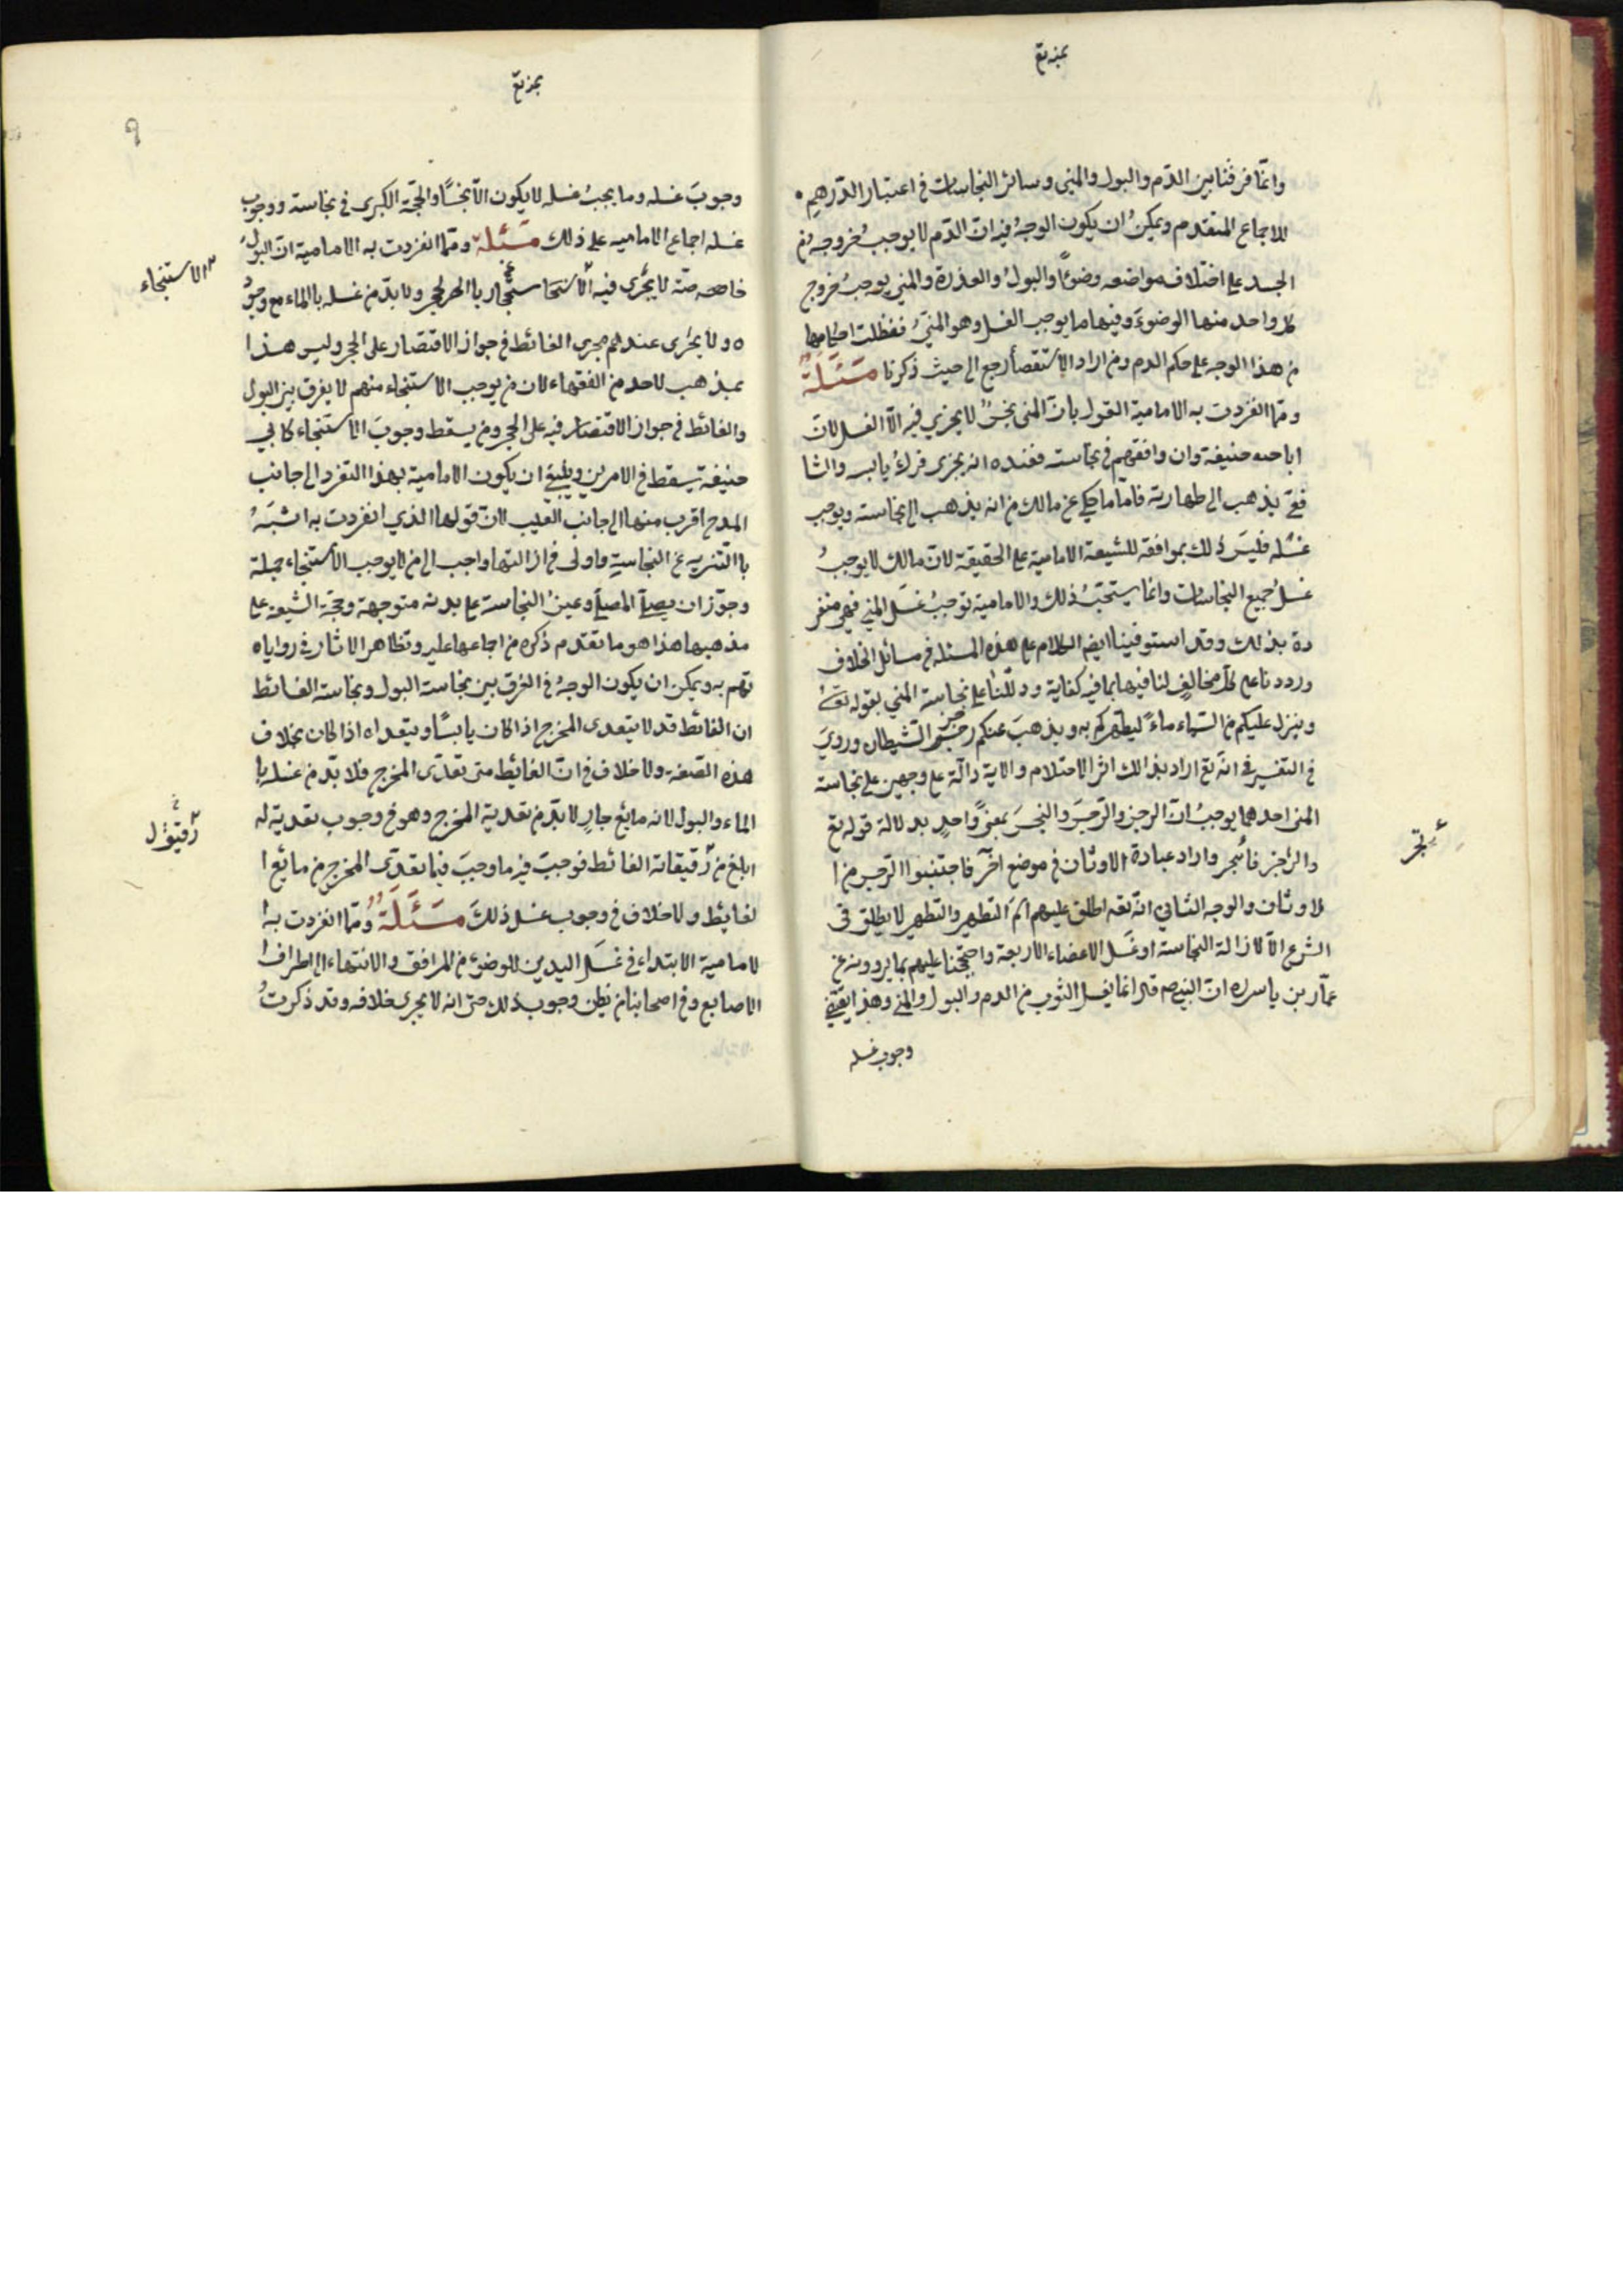 وانما فرقنا بين الدّم والبول والمنى وسائر النجاسات في اعتبار الدّرهم
للاجماع المتقدم ويمكن ان يكون الوجه فيه انّ الدّم لا يوجب خروجه من
الجسد على اختلاف مواضعه وضوءًا والبول والعذرة والمني يوجب خروج
كل واحد منها الوضوء وفيها ما يوجب الغسل وهو المنيّ فغظلت احكامها
من هذا الوجه على حكم الدم ومن اراد الاستقصا رجع الى حيث ذكرنا مَسْئَلَة
وممّا انفردت به الامامية القول بانّ المنى نجسٌ لا يجزي فيه الّا الغسل لانّ
ابا حنيفة وان وافقهم في نجاسته فعنده انه يجزى فرك يابسه والشا
فعي يذهب الى طهارته فاما ما حكي عن مالك من انه يذهب الى نجاسته ويوجب
غسله فليسَ ذلك بموافقه للشيعة الامامية على الحقيقة لانّ مالك لا يوجبُ
غسلُ جميع النجاسات وانما يستحبّ ذلك والامامية توجبُ غسل المني فهي منفر
دة بذلك وقد استوفينا ايضا الكلام على هذه المسئله في مسائل الخلاف
ورددنا على كل مخالف لنا فيها بما فيه كفاية ودلّلنا على نجاسة المني بقوله تعالى
وينزل عليكم من السّماء ماءً ليطهركم به ويذهبَ عنكم رجز الشيطان ورويَ
في التفسير في انّه تع اراد بذالك اثر الاحتلام والاية دالّة على وجهين على نجاسة
المنى احدهما يوجبُ انّ الرجز والرّجسَ والنجسَ بمعنىً واحدٍ بدلالة قوله تع
والرّجز فاهجر واراد عبادة الاوثان في موضع اخر فاجتنبوا الرّجس من ا
لاوثان والوجه الثاني انّه تعه اطلق عليهم اسم التطهير والتطهير لا يطلق في
الشرع الّا لازالة النجاسة او غسل الاعضاء الاربعة واحتججنا عليهم بما يروونه عن
عمّار بن ياسر ره انّ النبي ص قال انما يغسل الثوب من الدم والبول والمني وهذا يقتضي
وجوب غسله
وجوبَ غسله وما يجبُ غسله لا يكون الّا نجسًا والحجّة الكبرى في نجاسته ووجوب
غسله اجماع الاماميه على ذلك مَسْئلة وممّا انفردت به الامامية انّ البول
خاصة لا يجزى فيه بالحجر ولا بدّ من غسله بالماء مع وجود
ه ولا يجرى عندهم مجرى الغائط في جواز الاقتصار على الحجر وليس هذا
بمذهب لاحد من الفقهاء لان من يوجب الاستنجاء منهم لا يفرق بين البول
والغائط في جواز الاقتصار فيه على الحجر ومن يسقط وجوبَ الاستنجاء كابي
حنيفة يسقط في الامرين وينبغي ان يكون الامامية بهذا التفرد الى جانب
المدح اقرب منها الى جانب العيب لانّ قولها الذي انفردت به اشبَهُ
با التّنزيه عن النجاسةِ واولى في ازالتها واجب الى من لا يوجب الاستنجاء جملة
وجوّز ان يصلّ المصلّ وعينُ النجاسة على بدنه متوجهة وحجّة الشيعة على
مذهبها هذا هو ما تقدم ذكره من اجماعها عليه وتظاهر الاثار في رواياه
تهم به ويمكن ان يكون الوجهُ في الفرق بين نجاسة البول ونجاسة الغائط
ان الغائط قد لا يتعدى المخرج اذا كان يابسًا ويتعداه اذا كان بخلاف
هذه الصّفة ولا خلاف في انّ الغايط متى تعدّى المخرج فلا بدّ من غسله با
الماء والبول لانه مايع جارٍ لا بدّ من تعدية المخرج وهو في وجوب تعديته له
ابلغ من رقيقة الغائط فوجبَ فيه ما وجبَ فيما تعدّى المخرج من مايع ا
لغايط ولا خلاف في وجوب غسل ذلكَ مَسْئَلَة وممّا انفردت به ا
لامامية الابتداء في غسَل اليدين للوضوء من المرافق والانتهاء الى اطراف
الاصابع وفي اصحابنا من يظن وجوب ذلك حتى انه لا يجري خلافه وقد ذكرتُ
الاستنجاء